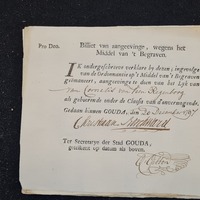 Pro Deo.
Billet van aangeevinge, wegens het
Middel van 't Begraven.
IK ondergeschreven verklare by deezen, ingevolge
van de Ordonnantie op 't Middel van 't Begraven
geëmaneert, aangeevinge te doen van het Lyk
van Cornelis van
als gehoorende onder de Classis van d'onvermogende.
Gedaan binnen GOUDA, den 20 December
Christiaan
Ter Secretarye der Stad GOUDA,
geregistreert op datum als boven.